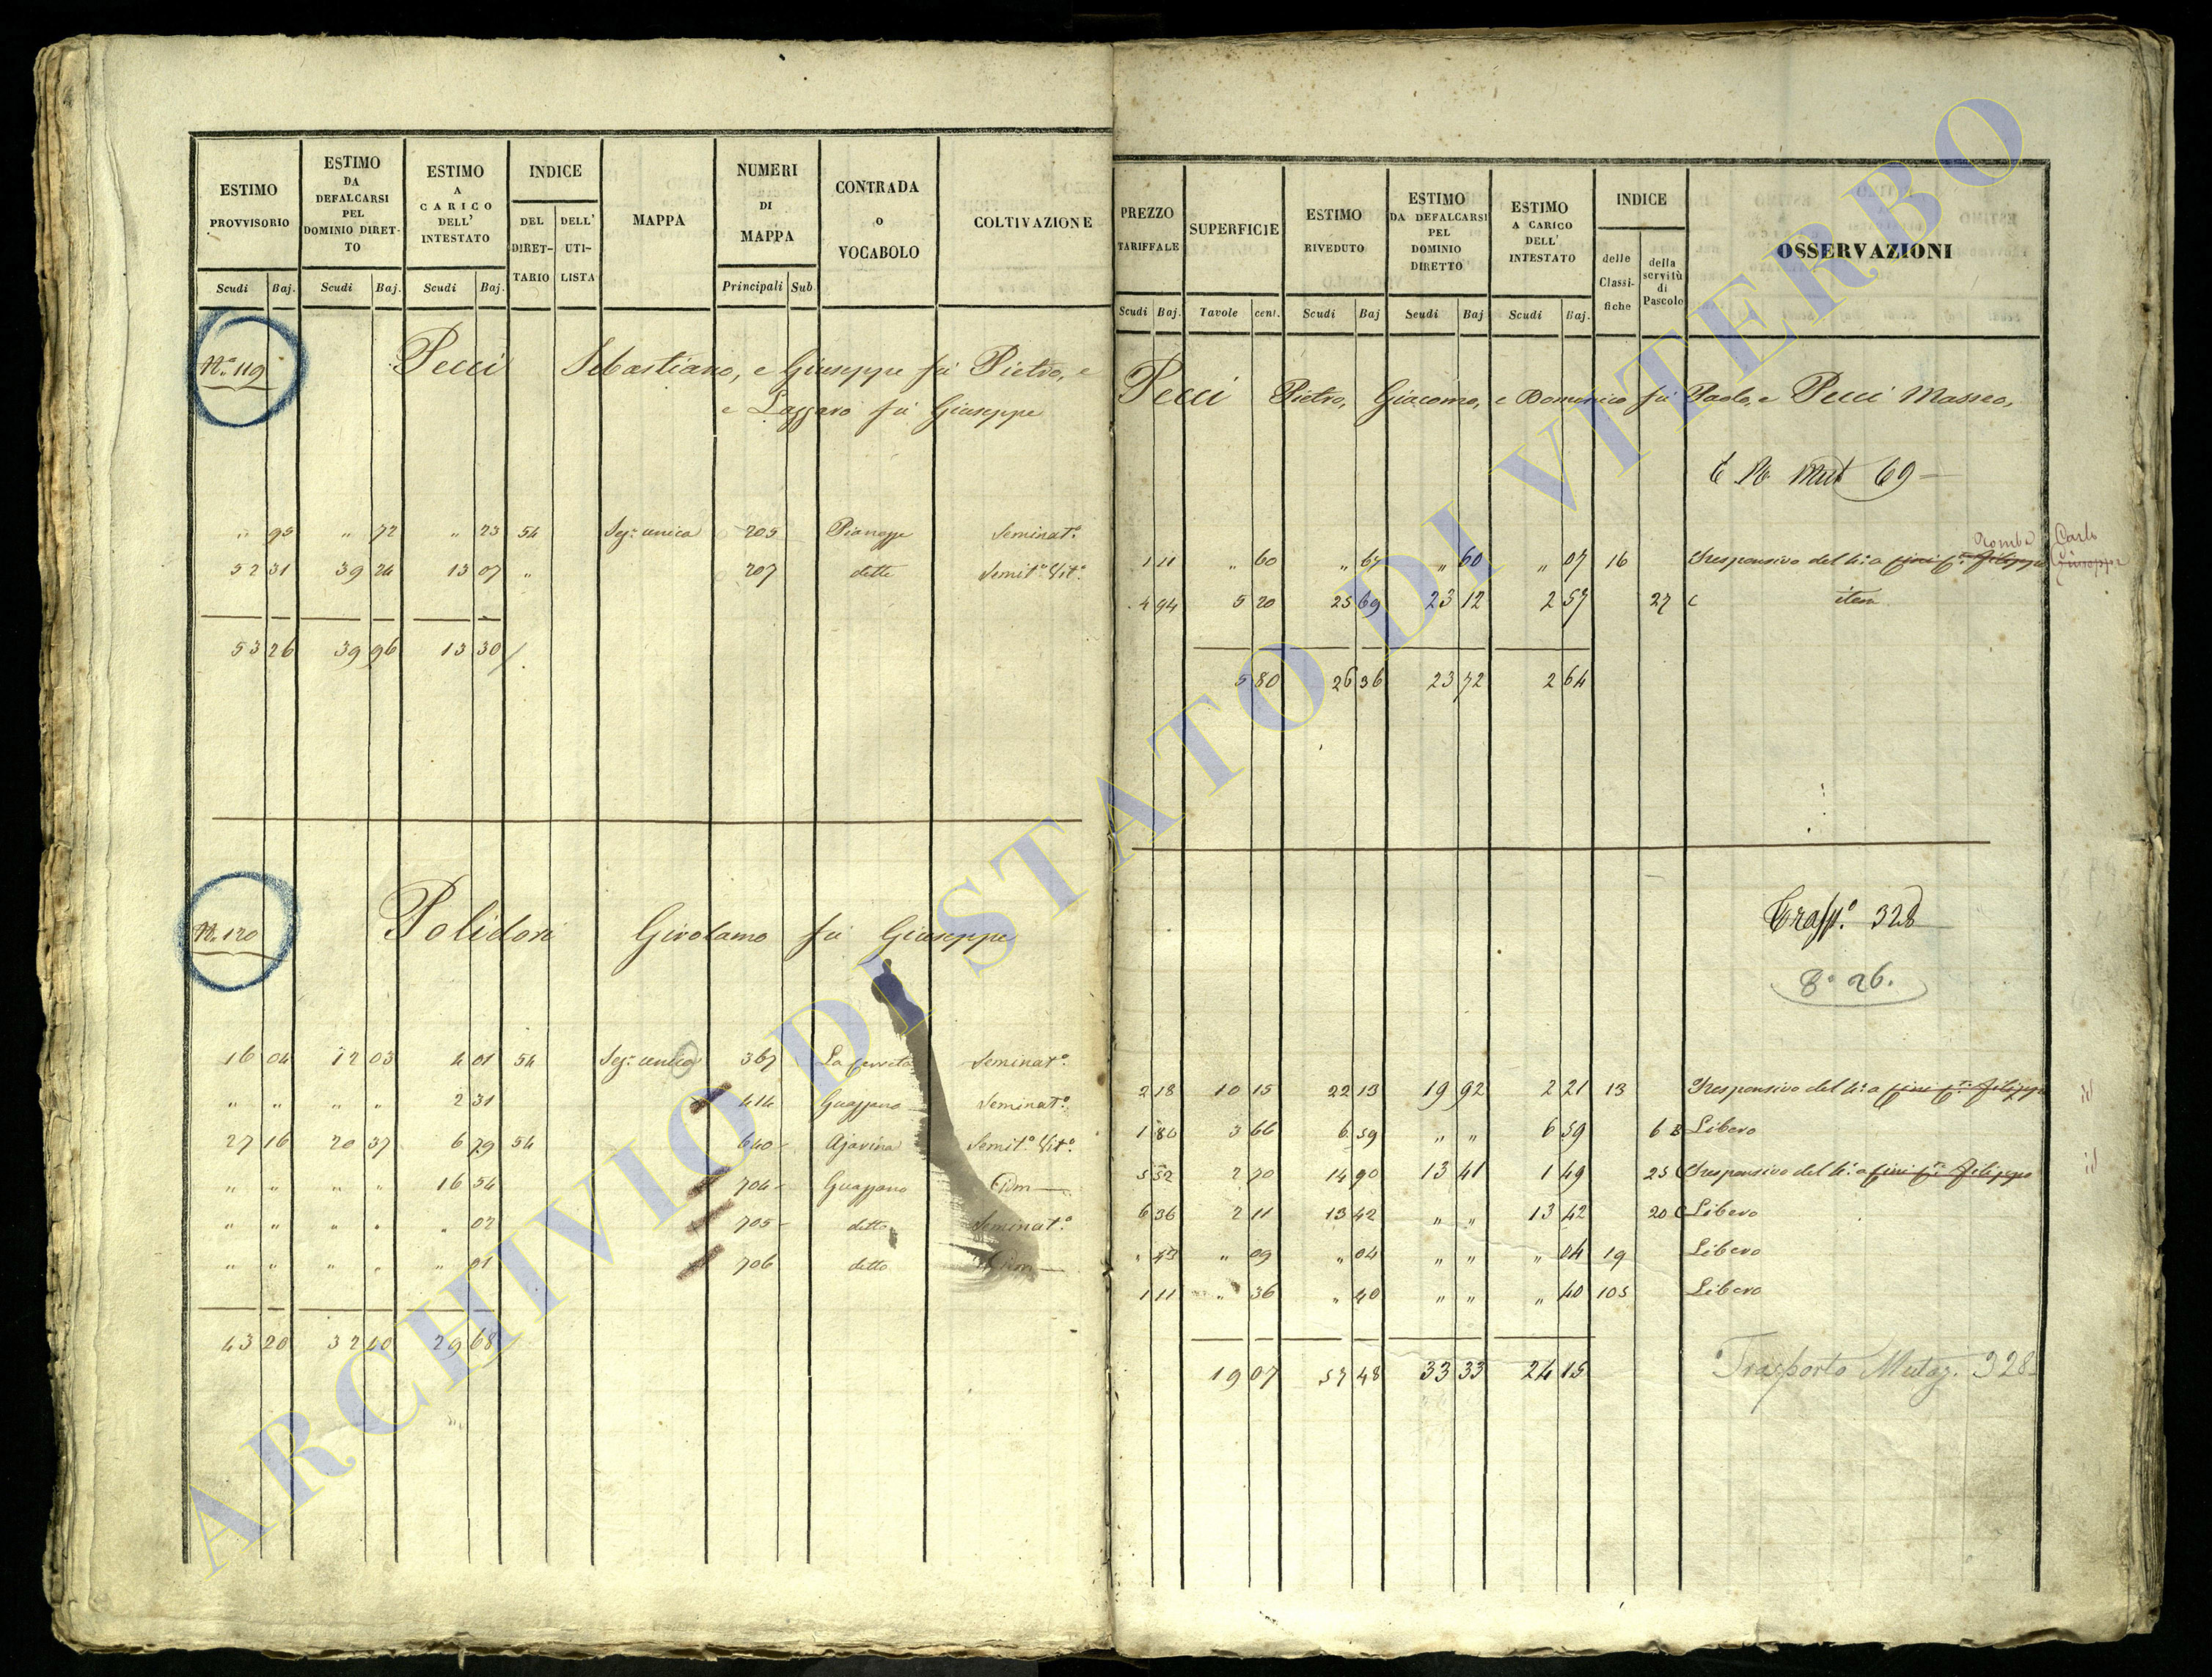 ESTIMO PROVVISORIO | ESTIMO DA DEFALCARSI PEL DOMINIO DIRETTO | ESTIMO A CARICO DELL' INTESTATO | INDICE | MAPPA | NUMERI DI MAPPA | CONTRADA o VOCABOLO | COLTIVAZIONE
DEL DIRETTARIO | DELL' UTILISTA
Scudi | Baj. | Scudi | Baj. | Scudi | Baj. | Principali | Sub.
N.° 119 Pecci Sebastiano, e Giuseppe fù Pietro, e
e Lazzaro fù Giuseppe
" 95 | " 72 | " 23 | 54 | Sez: unica | 205 | Pianazze | Seminat.°
52 31 | 39 24 | 13 07 | " | 207 | dette | Semit.° Vit.°
53 26 | 39 96 | 13 30
N. 120 Polidori Girolamo fù Giuseppe
16 04 | 12 03 | 4 01 | 54 | Sez: unica | 367 | La Cerreta | Seminat.°
" " | " " | 2 31 | 414 | Guazzano | Seminat.°
27 16 | 20 37 | 6 79 | 54 | 640 | Ajavina | Semit.° Vit.°
" " | " " | 16 54 | 704 | Guazzano | Idm
" " | " " | " 02 | 705 | detto | Seminat.°
" " | " " | " 01 | 706 | detto | Idm
43 20 | 32 40 | 29 68
PREZZO TARIFFALE | SUPERFICIE | ESTIMO RIVEDUTO | ESTIMO DA DEFALCARSI PEL DOMINIO DIRETTO | ESTIMO A CARICO DELL' INTESTATO | INDICE | OSSERVAZIONI
delle Classifiche | della servitù di Pascolo
Scudi | Baj. | Tavole | cent. | Scudi | Baj | Scudi | Baj | Scudi | Baj.
Pecci Pietro, Giacomo, e Domenico fù Paolo, e Pecci Masseo,
Mut 69
Carlo
1 11 | " 60 | " 67 | " 60 | " 07 | 16 | Responsivo del 4.° a Giuseppe
4 94 | 5 20 | 25 69 | 23 12 | 2 57 | 27 C | item
5 80 | 26 36 | 23 72 | 2 64
Trasp.° 328
8° 26.
2 18 | 10 15 | 22 13 | 19 92 | 2 21 | 13 | Responsivo del 4.° a | id
1 80 | 3 66 | 6 59 | " " | 6 59 | 6 B | Libero
5 52 | 2 70 | 14 90 | 13 41 | 1 49 | 25 C | Responsivo del 4.° a | id
6 36 | 2 11 | 13 42 | " " | 13 42 | 20 C | Libero
" 43 | " 09 | " 04 | " " | " 04 | 19 | Libero
1 11 | " 36 | " 40 | " " | " 40 | 105 | Libero
19 07 | 57 48 | 33 33 | 24 15
Trasporto Mutaz. 328
ARCHIVIO DI STATO DI VITERBO